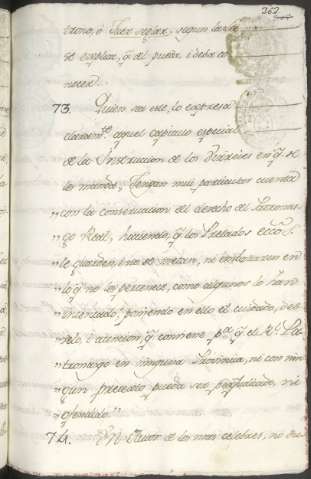 262
se explica, q̃ al puña, i deba co
nocer.
73. Quien sea este, lo expresa
claramte. aquel capitulo especial
de la Instruccion de los Virreies en q̃ se
les manda; Tengan mui particular cuenta
"con la conservacion del derecho del Patronaz-
"go Real, haciendo, q̃ los Prelados eccos.
"le guarden, i no se metan, ni embarazen en
"lo q̃ no les pertenece, como algunos lo han
"intentado: poniendo en ello el cuidado, des-
"velo, i atencion q̃ conviene pa. q̃ el Rl. Pa-
"tronazgo en ninguna Provincia, ni con nin-
"gun pretexto pueda ser perjudicado, ni
"ofendido."
74. Un Autor de los mas celebres, no du-